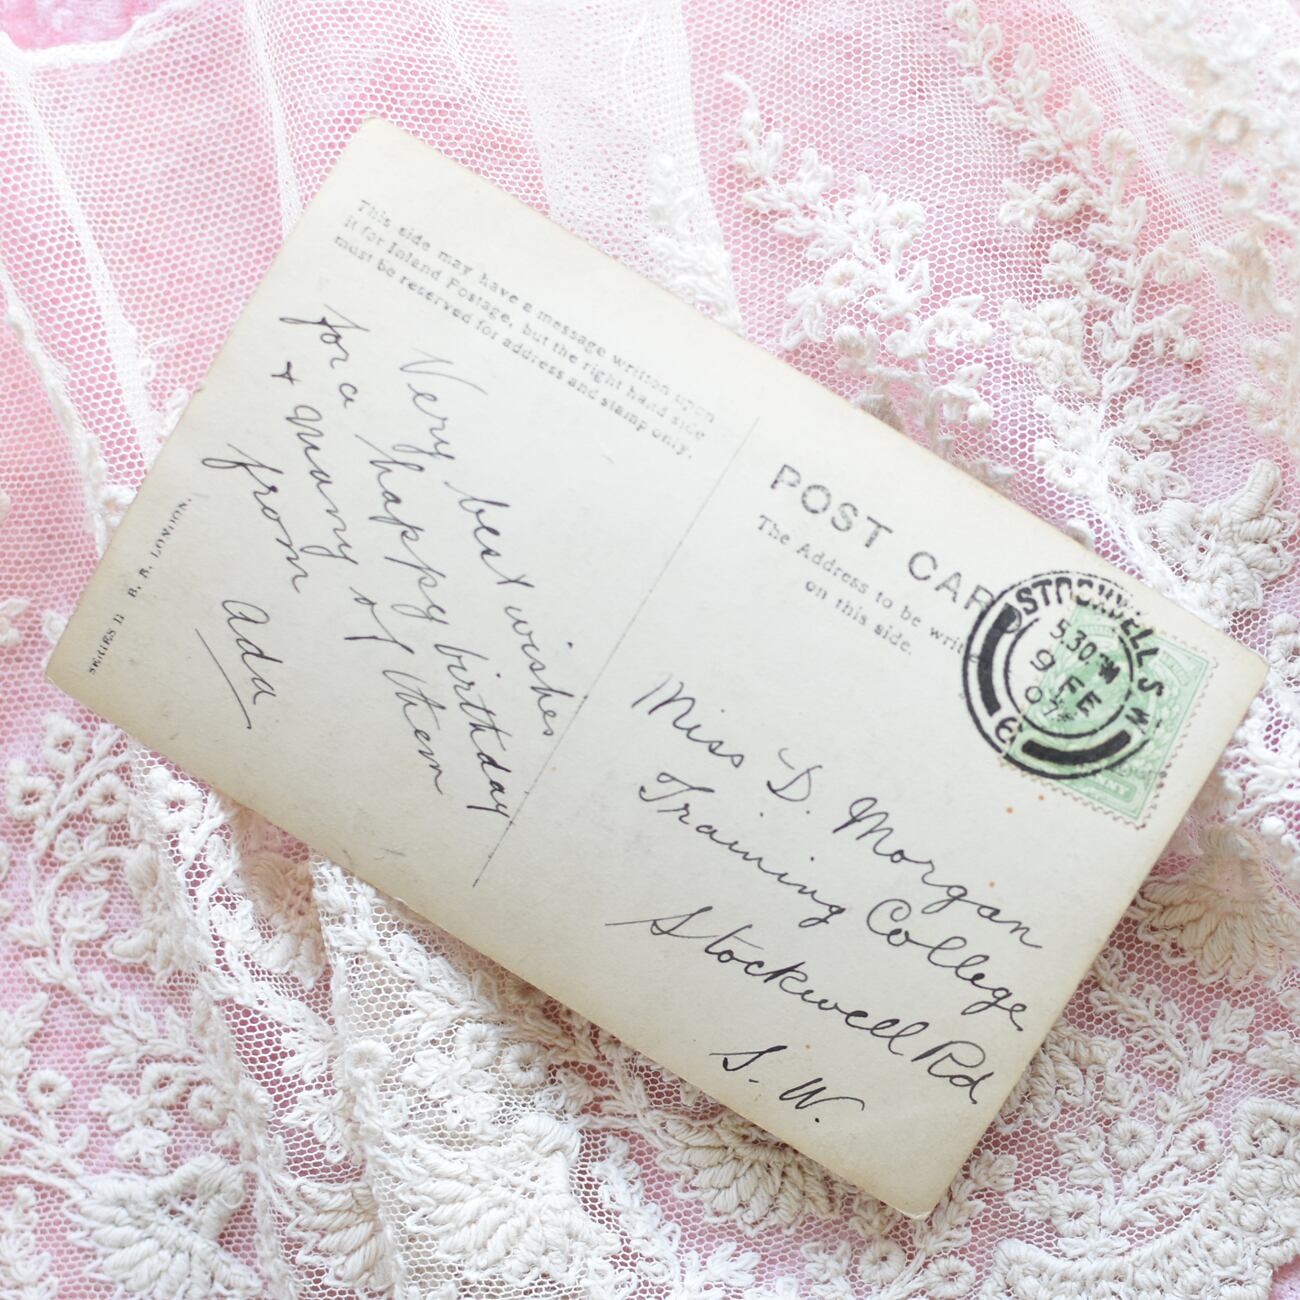 This side may have a message written upon
it for Inland Postage, but the right hand side
must be reserved for address and stamp only.
Very best wishes
for a happy birthday
+ many of them
from
Ada
SERIES 11 B. B. LONDON.
POST CARD
The Address to be writ
on this side.
STOCKWELL S.W.
5.30 PM
9 FE
07
6
Miss D. Morgan
Training College
Stockwell Rd
S. W.